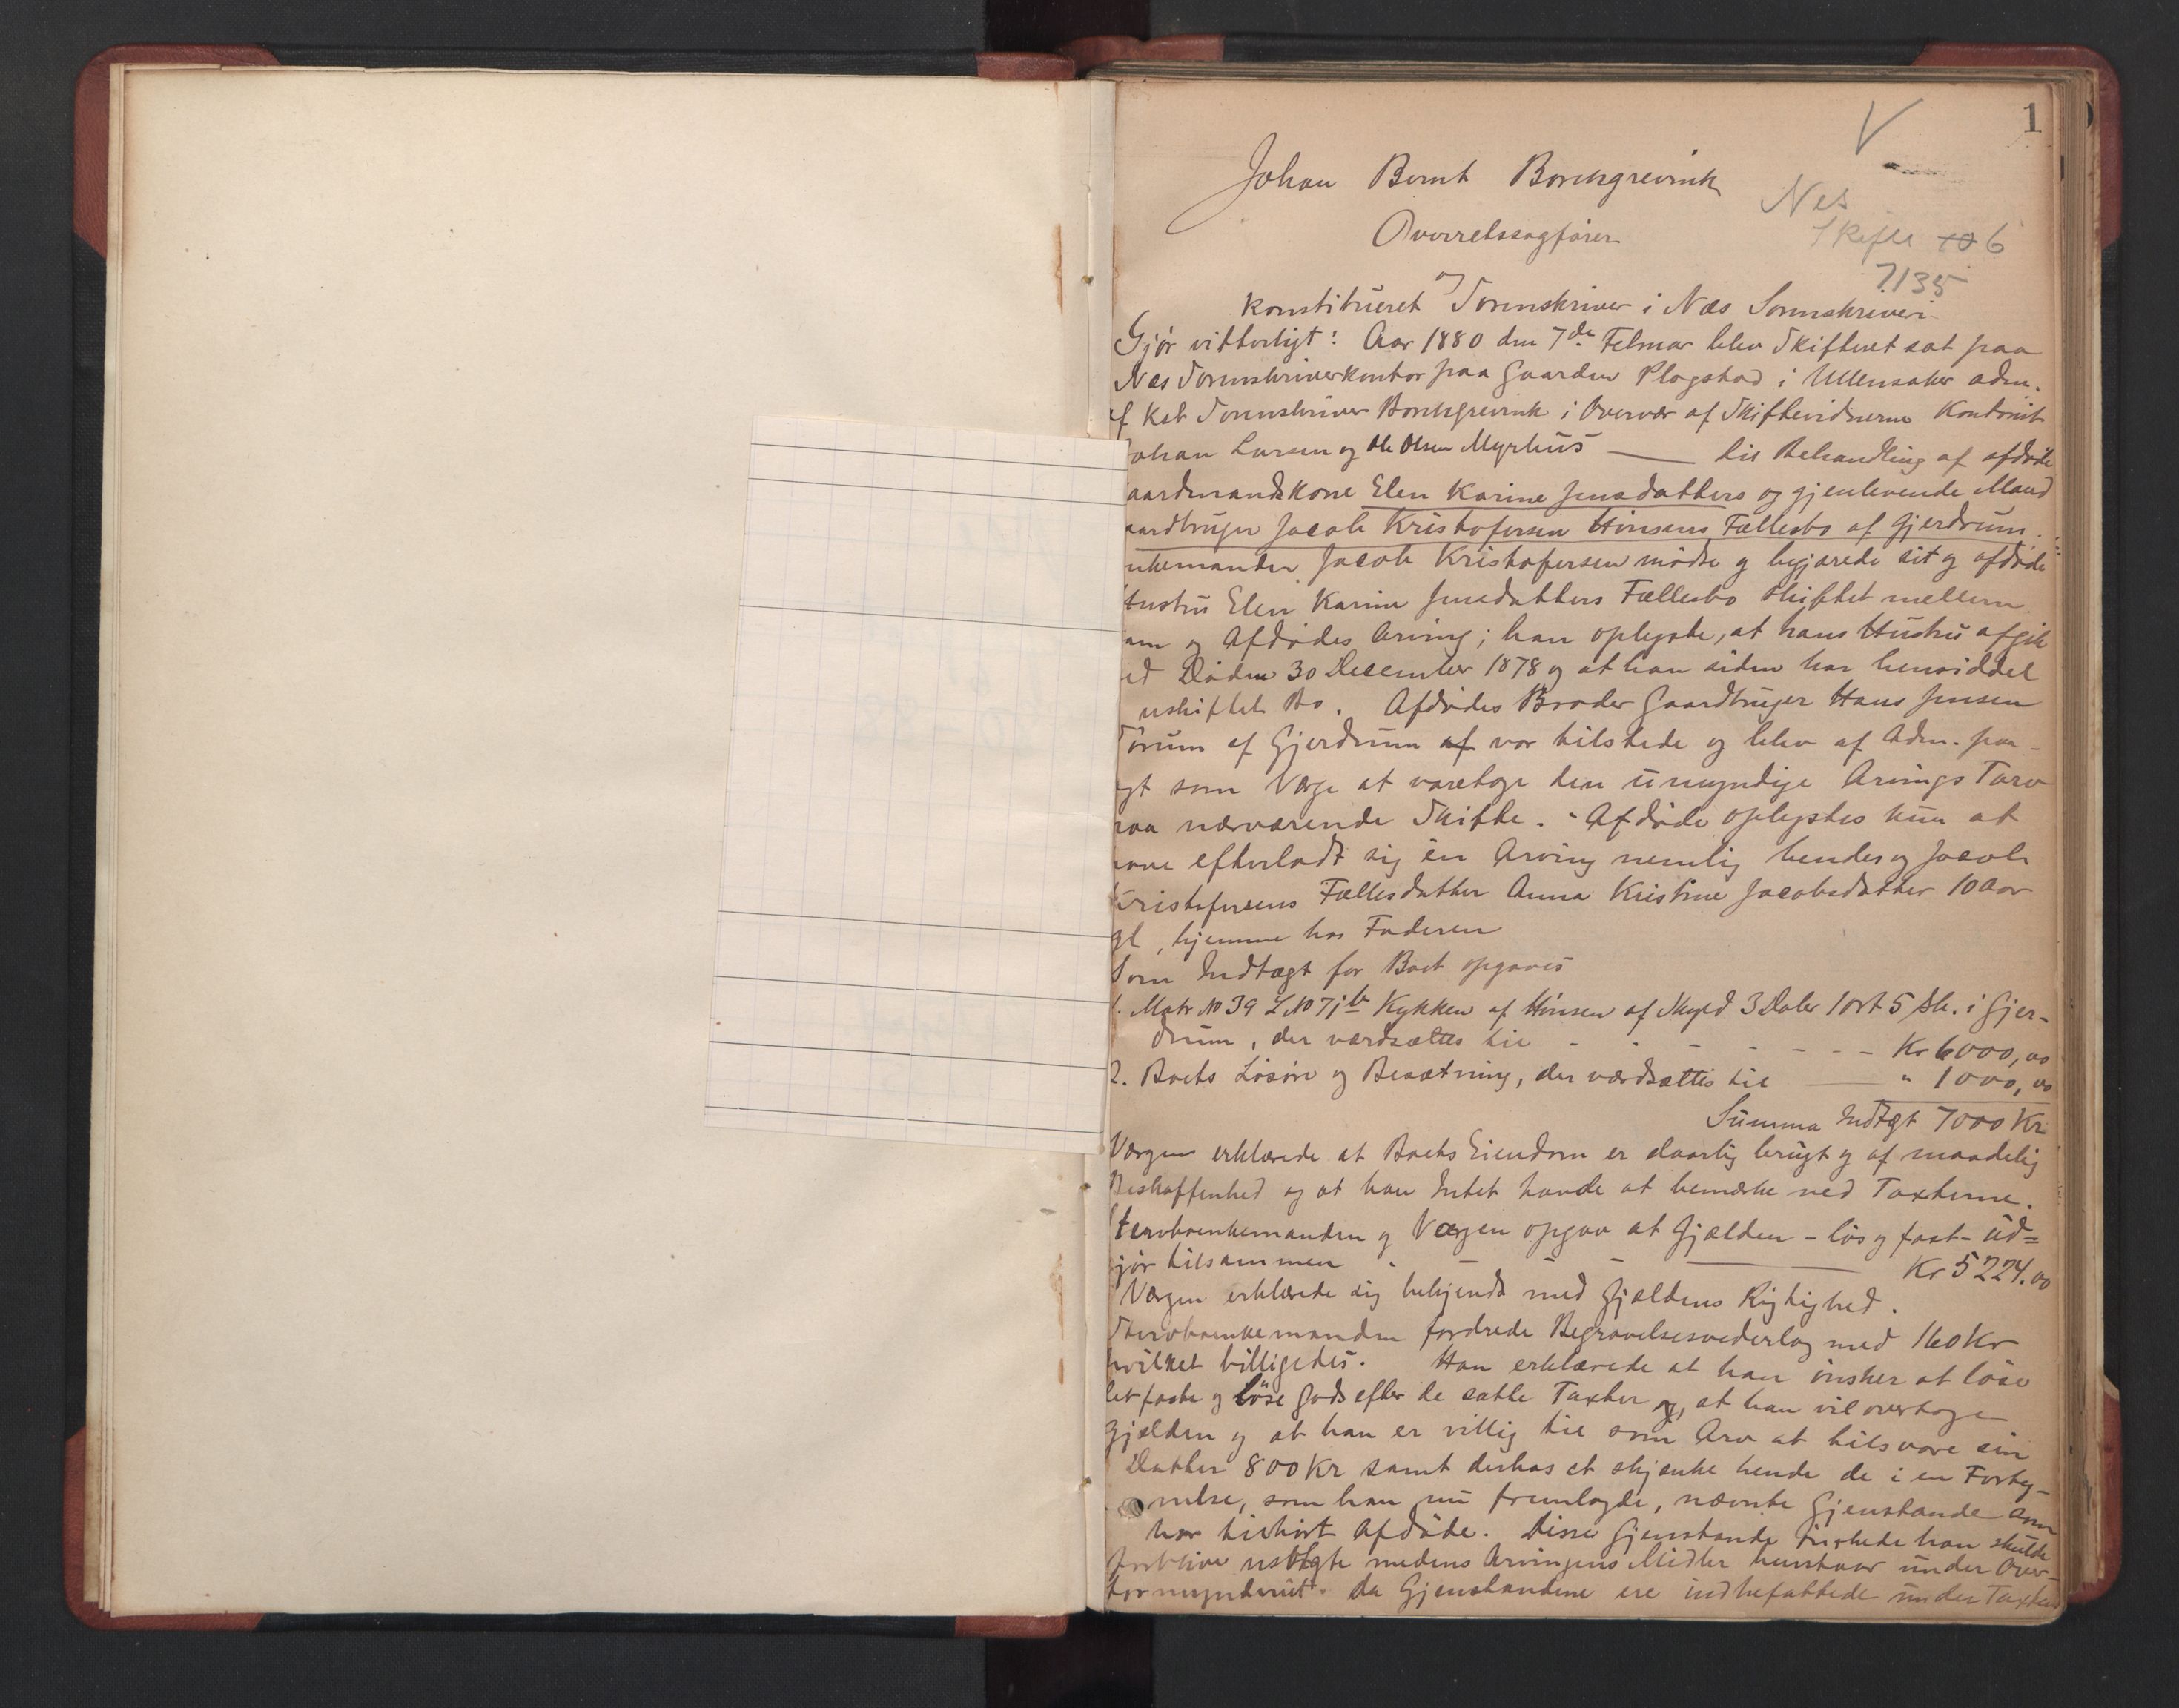 1
V
Johan Bernt Borchgrevink
Nes
Overretssagfører
Skifte 10 6
7135
og
konstitueret Sorenskriver i Næs Sorenskriveri
Gjør vitterligt: Aar 1880 den 7de Februar blev Skifteret sat paa
Næs Sorenskriverkontor paa Gaarden Plogstad i Ullensaker adm.
af Kst Sorenskriver Borchgrevink i Overvær af Skiftevidnerne Kontorist
Johan Larsen og Ole Olsen Myrhus — til Behandling af afdøde
aardmandskone Elen Karine Jensdatters og gjenlevende Mand
aardbruger Jacob Kristofersen Hønsens Fællesbo af Gjerdrum.
nkemanden Jacob Kristofersen mødte og begjærede sit og afdøde
Hustru Elen Karine Jensdatters Fællesbo skiftet mellem
am og Afdødes Arving; han oplyste, at hans Hustru afgik
ed Døden 30 December 1878 og at han siden har hensiddet
uskiftet Bo. Afdødes Broder Gaardbruger Hans Jensen
af Gjerdrum af var tilstede og blev af Adm. paa-
gt som Værge at varetage den umyndige Arvings Tarv
paa nærværende Skifte. - Afdøde oplystes kun at
have efterladt sig én Arving nemlig hendes og Jacob
Kristofersens Fællesdatter Anna Kristine Jacobsdatter 10 Aar
gl, hjemme hos Faderen
Som Indtægt for Boet opgaves
1. Matr No 39 L No 71b Kykken af Hønsen af Skyld 3 Daler 1 ort 5 Sk. i Gjer-
drum, der værdsættes til - - - - - - Kr 6000,00
2. Boets Løsøre og Besætning, der værdsættes til — " 1000,00
Summa Indtægt 7000 Kr
Værgen erklærede at Boets Eiendom er daarlig brugt og af maadelig
Beskaffenhed og at han Intet havde at bemærke ved Taxterne.
Stervboenkemanden og Værgen opgav at Gjælden - løs og fast - ud=
gjør tilsammen - - - — Kr 5224.00
Værgen erklærede sig bekjendt med Gjældens Rigtighed.
Stervboenkemanden fordrede Begravelsesvederlag med 160 Kr
hvilket billigedes. Han erklærede at han ønsker at løse
det faste og løse Gods efter de satte Taxter og, at han vil overtage
Gjælden og at han er villig til som Arv at tilsvare sin
Datter 800 Kr samt derhos at skjænke hende de i en Forteg-
nelse, som han nu fremlagde, nævnte Gjenstande som
har tilhørt Afdøde. Disse Gjenstande ønskede han skulde
forblive usolgte medens Arvingens Midler henstaar under Over-
formynderiet. Da Gjenstandene ere indbefattede under Taxten